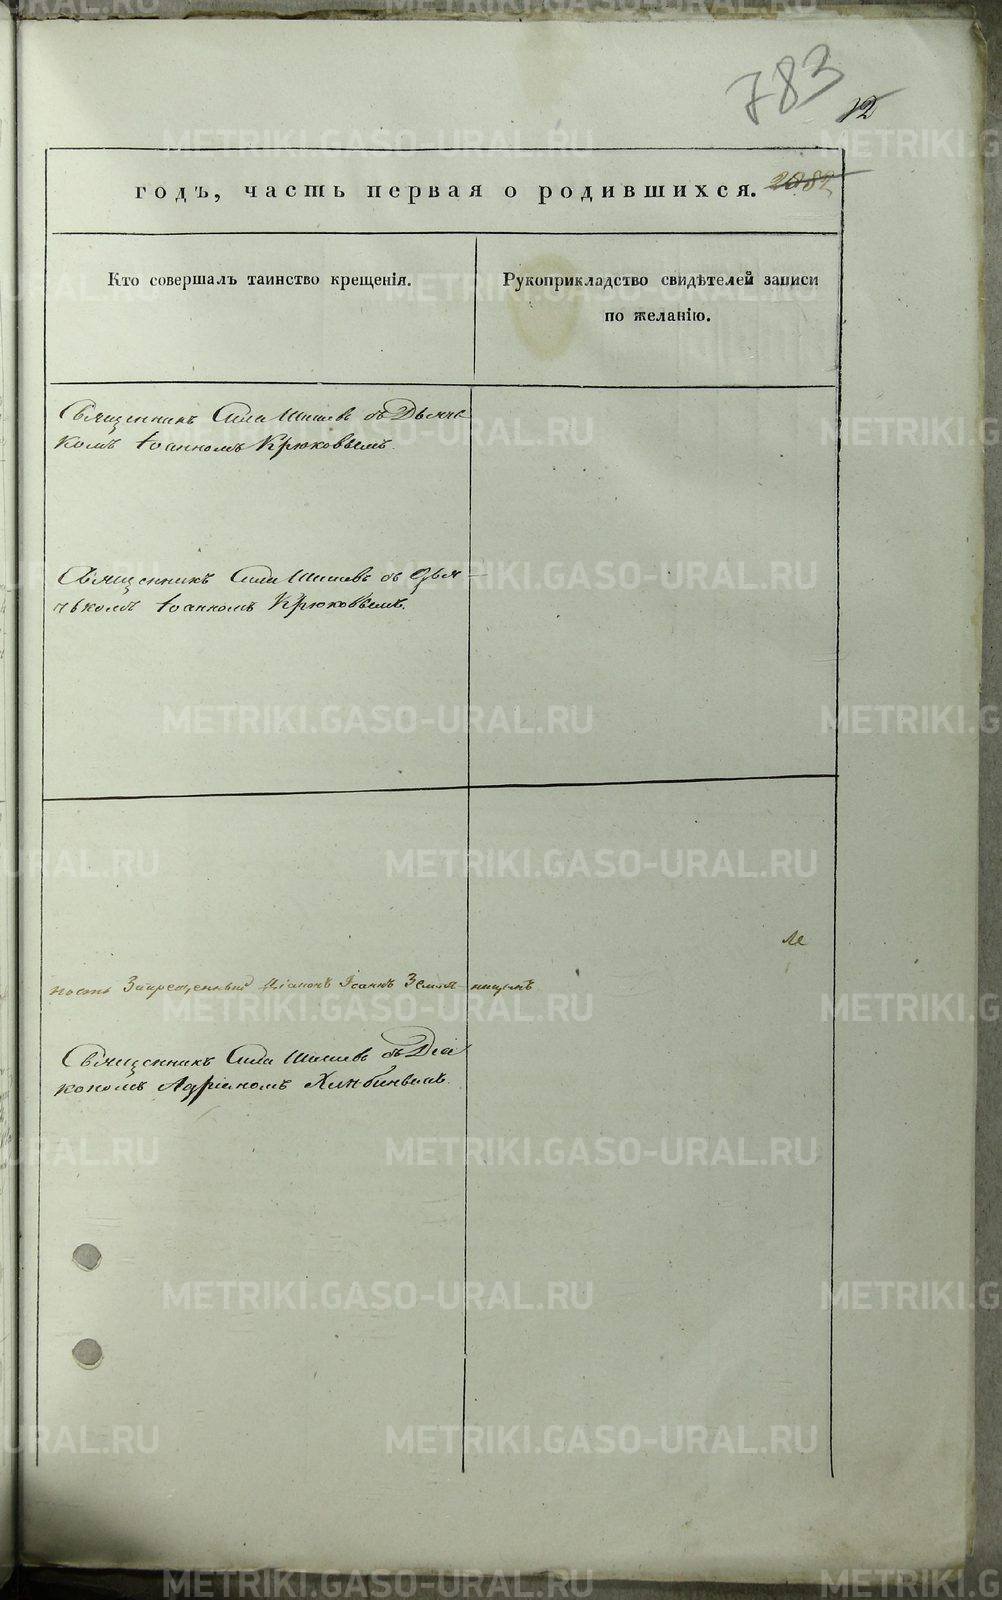 783
12
годъ, часть первая о родившихся. 2082
Кто совершалъ таинство крещенія.
Рукоприкладство свидѣтелей записи
по желанію.
Священникъ Сила Шишевъ съ Дьячь
комъ Іоанномъ Крюковымъ.
Священникъ Сила Шишевъ съ Дья-
чькомъ Іоанномъ Крюковымъ.
Ле
ность Запрещенный Діаконъ Іоаннъ Земля-ницынъ
Священникъ Сила Шишевъ съ Діа
кономъ Адріаномъ
METRIKI.GASO-URAL.RU